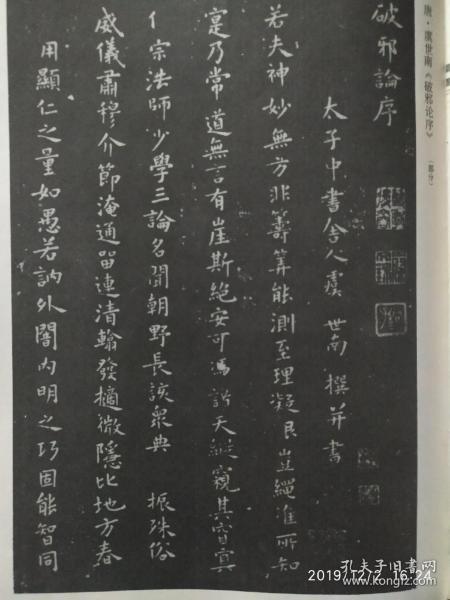 唐·虞世南《破邪论序》(部分)
破邪論序
太子中書舍人虞世南撰并書
若夫神妙無方非籌筭能測至理凝邈豈繩準所知
寔乃常道無言有崖斯絶安可憑諸天縱窺其窅寞
宗法師少學三論名聞朝野長該衆典振殊俗
威儀肅穆介節淹通留連清翰發擿微隱比地方春
用顯仁之量如愚若訥外闇內明之巧固能智同
2019/12/2 16:24
孔夫子旧书网
www.kongfz.com